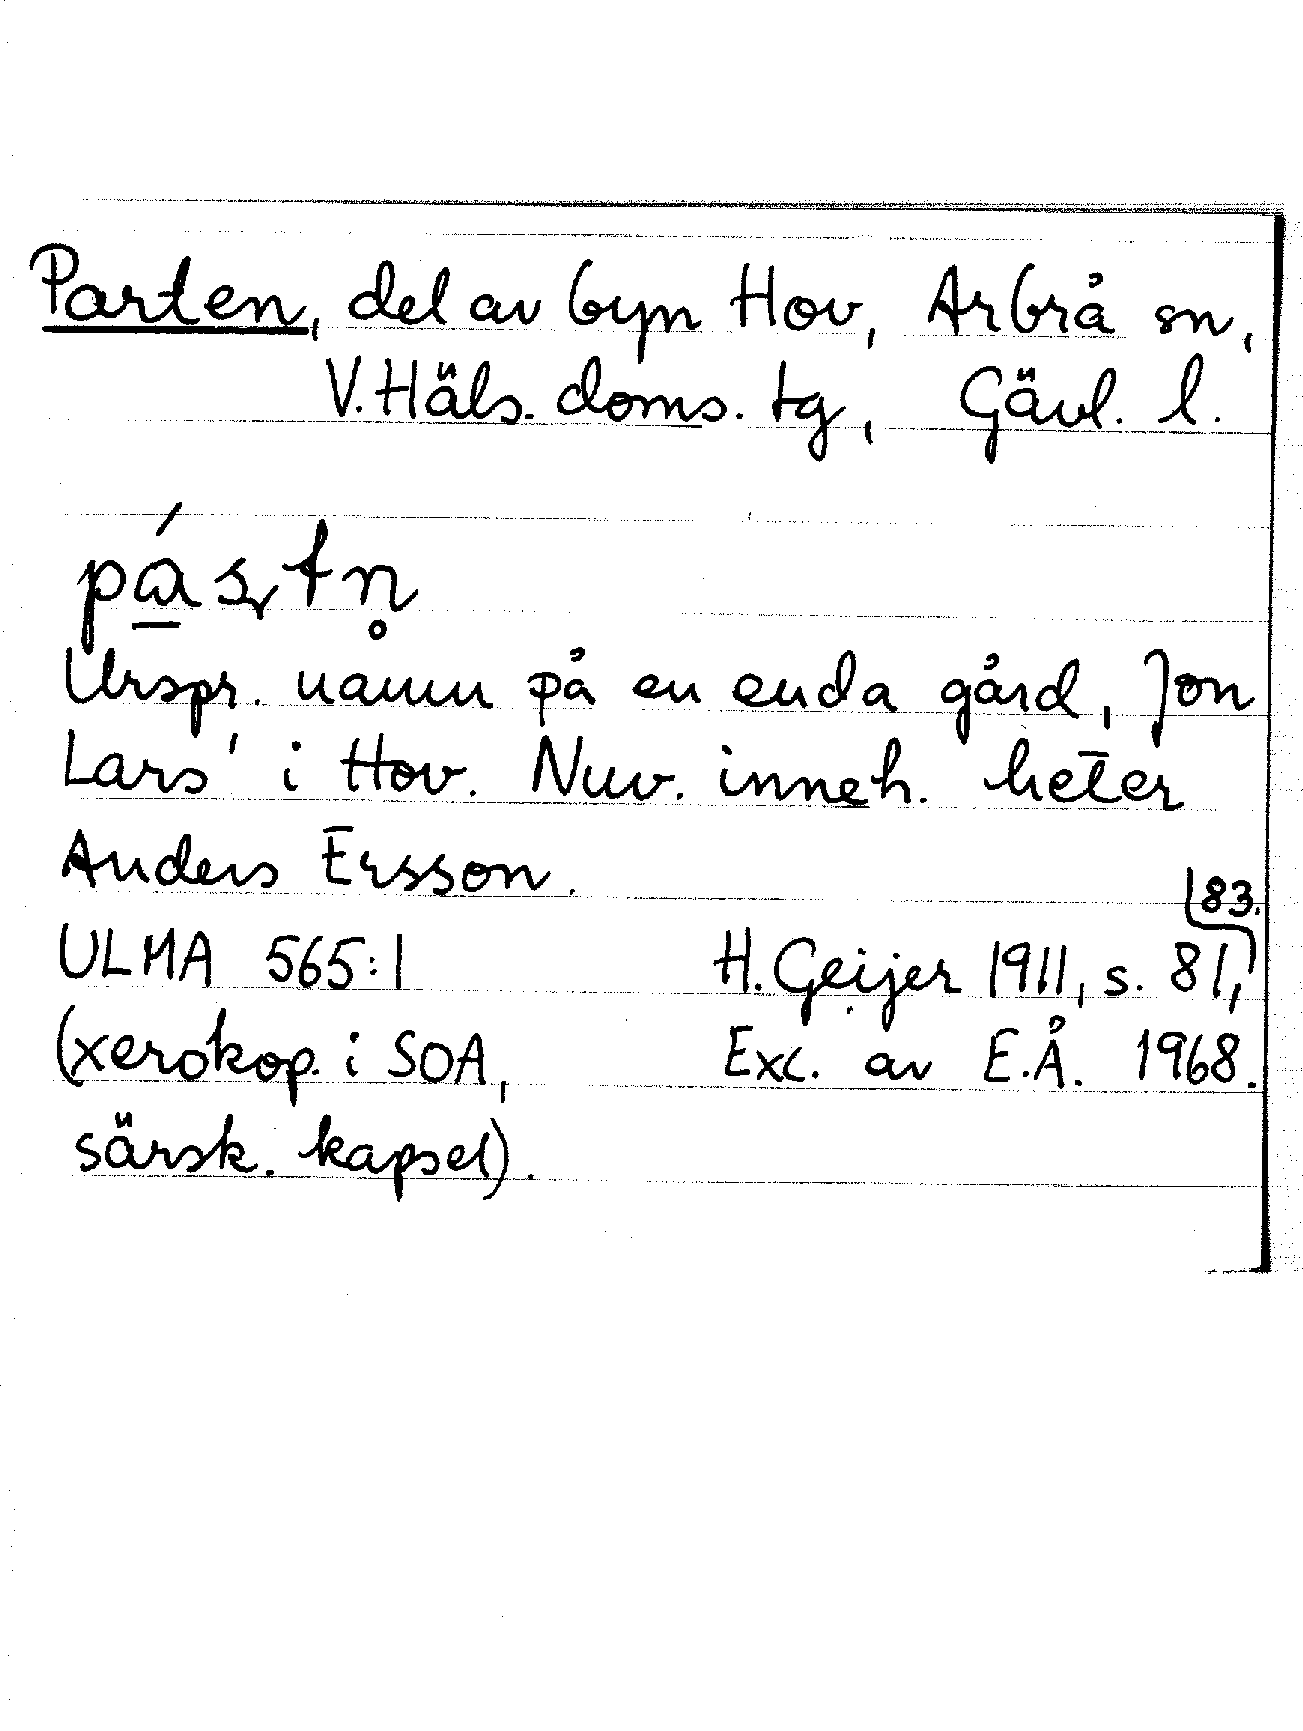 Parten, del av byn Hov, Arbrå sn,
V. Häls. doms. tg, Gävl. l.
Urspr. namn på en enda gård, Jon
Lars' i Hov. Nuv. inneh. heter
Anders Ersson.
83.
ULMA 565:1 H. Geijer 1911, s. 81,
(xerokop. i SOA, Exc. av E.Å. 1968.
särsk. kapsel).